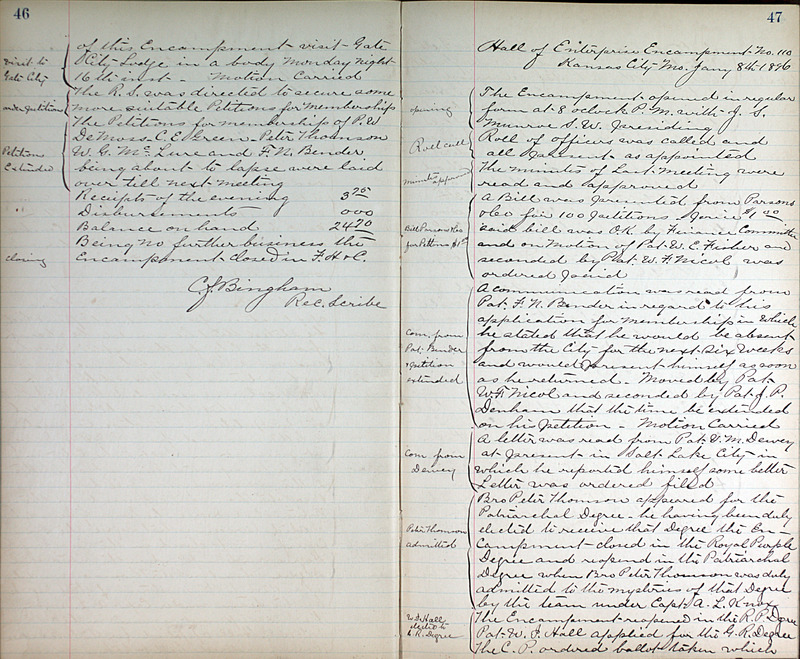 46
of this Encampment visit Gate
City Lodge in a body Monday night
16th inst - Motion Carried
The R.S. was directed to secure some
more suitable Petitions for Membership
The Petitions for membership of P.W
DeMoss - C.E. Green - Peter Thomson
W.G. McLure and F.N. Bender
being about to lapse were laid
over till next meeting
Receipts of the evening 3 75
Disbursements 000
Balance on hand 24 70
Being no further business the
Encampment closed in F.H & C.
C.J. Bingham
Rec. Scribe
visit to
Gate City
order Petitions
Petitions
Extended
closing
47
Hall of Enterprise Encampment No. 110
Kansas City Mo. Jany 8th 1896
The Encampment opened in regular
form at 8 oclock P.M. with J. S.
Munroe S.W. Presiding
Roll of officers was called and
all Present as appointed
The minutes of Last meeting were
read and approved
A Bill was presented from Parsons
&Co for 100 Petitions - Price $1.00
Said bill was OK by Finance Committee
and on Motion of Pat. W.E. Fisher and
seconded by Pat. W.F. Nicol was
ordered Paid
A communication was read from
Pat. F.N. Bender in regard to his
application for membership in which
he stated that he would be absent
from the City for the next Six Weeks
and would present himself as soon
as he returned - Moved by Pat.
W.F. Nicol and seconded by Pat J. P.
Denham that the time be extended
on his Petition - Motion Carried
A letter was read from Pat. V.M. Dewey
at Present in Salt Lake City in
which he reported himself some better
Letter was ordered filed
Bro Peter Thomson appeared for the
Patriarchal Degree - he having been duly
elected to receive that Degree the En-
campment closed in the Royal Purple
Degree and reopened in the Patriarchal
Degree when Bro Peter Thomson was duly
admitted to the mysteries of that Degree
by the team under Capt. A. L. Knox
The Encampment reopened in the R.P. Degree
Pat. W. J. Hall applied for the G.R. Degree
The C.P. ordered ballot taken which
opening
Roll call
minutes approved
Bill Parsons &Co
for Petitions $1.00
Com. from
Pat. Bender
& petition
extended
Com from
Dewey
Peter Thomson
admitted
W J Hall
elected to
G. R. Degree